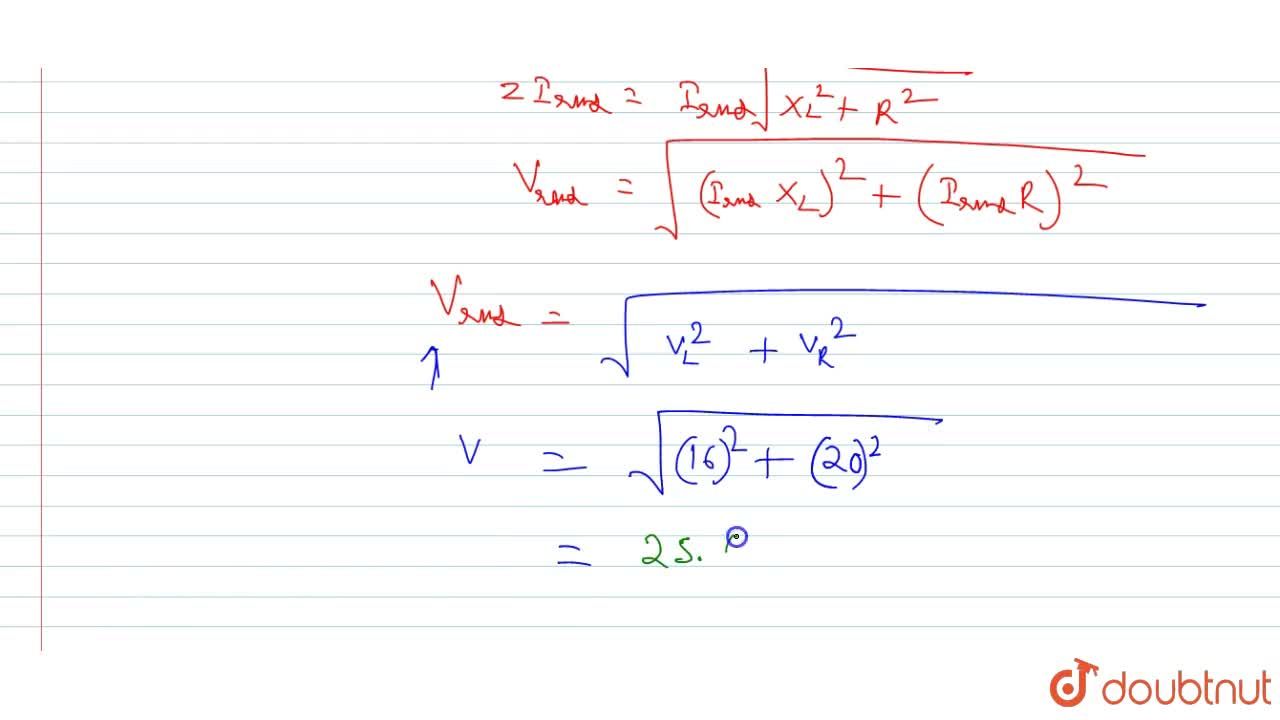 Z I_rms = I_rms √(X_L² + R²)
V_rms = √((I_rms X_L)² + (I_rms R)²)
V_rms = √(V_L² + V_R²)
↑
V = √((16)² + (20)²)
= 25.
doubtnut